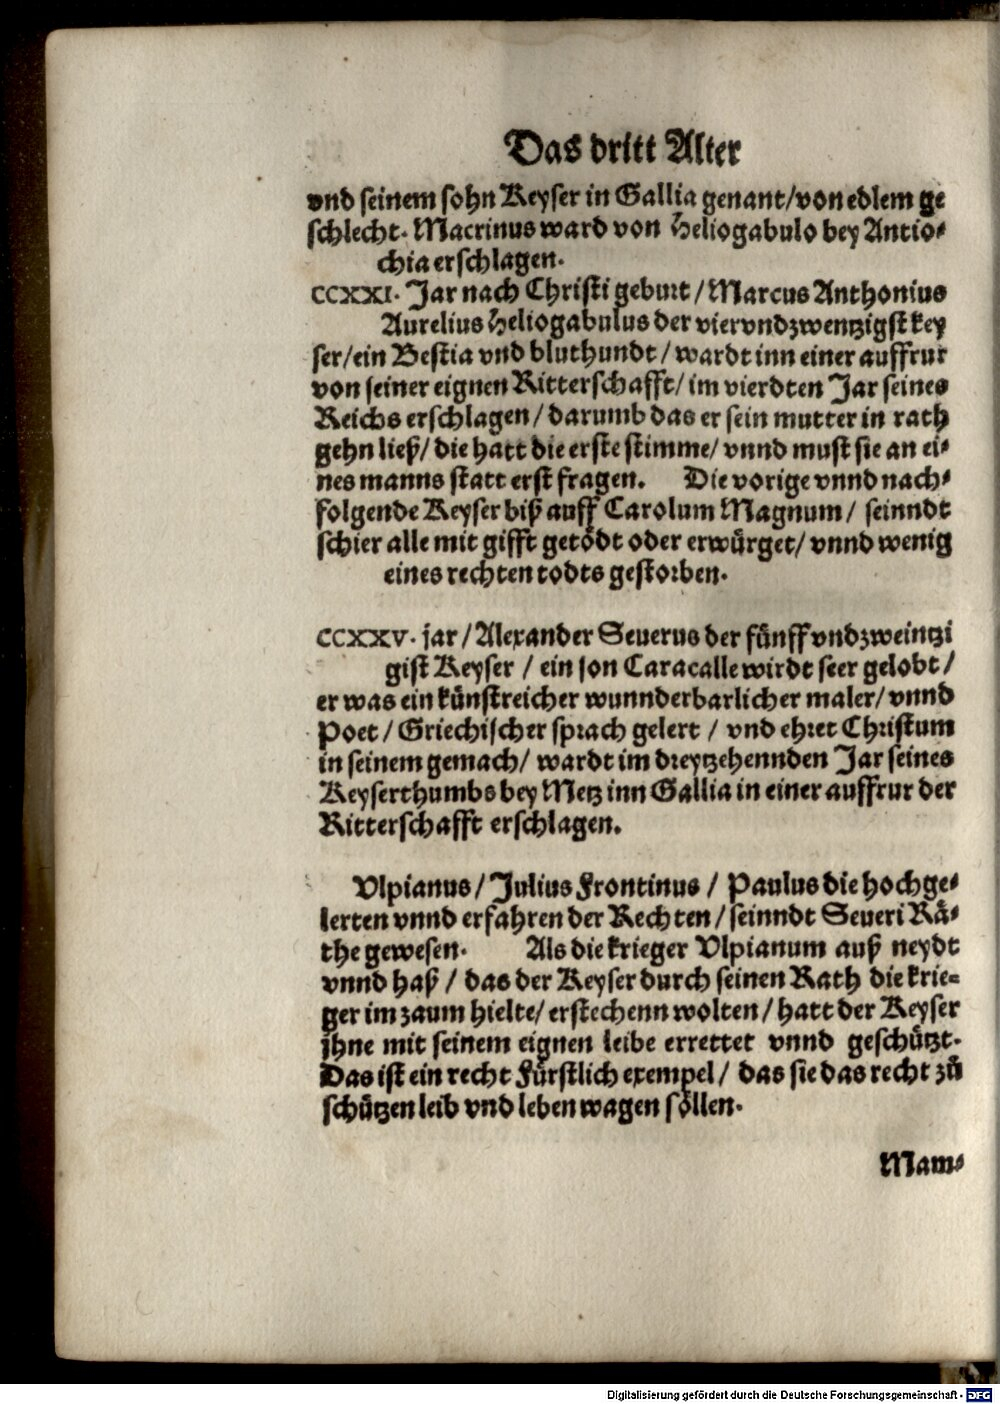 Das dritt Alter
vnd seinem sohn Keyser in Gallia genant/von edlem ge
schlecht. Macrinus ward von Heliogabulo bey Antio⸗
chia erschlagen.
CCXXI. Jar nach Christi geburt/Marcus Anthonius
Aurelius Heliogabulus der viervndzwentzigst key
ser/ein Bestia vnd bluthundt/wardt inn einer auffrur
von seiner eignen Ritterschafft/im vierdten Jar seines
Reichs erschlagen/darumb das er sein mutter in rath
gehn ließ/die hatt die erste stimme/vnnd must sie an ei⸗
nes manns statt erst fragen. Die vorige vnnd nach⸗
folgende Keyser biß auff Carolum Magnum/ seinndt
schier alle mit gifft getödt oder erwürget/vnnd wenig
eines rechten todts gestorben.
CCXXV. jar/Alexander Seuerus der fünffvndzweintzi
gist Keyser / ein son Caracalle wirdt seer gelobt/
er was ein künstreicher wunnderbarlicher maler/vnnd
Poet/Griechischer sprach gelert / vnd ehret Christum
in seinem gemach/ wardt im dreytzehennden Jar seines
Keyserthumbs bey Metz inn Gallia in einer auffrur der
Ritterschafft erschlagen.
Vlpianus/Julius Frontinus / Paulus die hochge⸗
lerten vnnd erfahren der Rechten/seinndt Seueri Rä⸗
the gewesen. Als die krieger Vlpianum auß neydt
vnnd haß/ das der Keyser durch seinen Rath die krie⸗
ger im zaum hielte/erstechenn wolten/hatt der Keyser
ihne mit seinem eignen leibe errettet vnnd geschützt.
Das ist ein recht Fürstlich exempel/ das sie das recht zů
schützen leib vnd leben wagen söllen.
Mam⸗
Digitalisierung gefördert durch die Deutsche Forschungsgemeinschaft - DFG